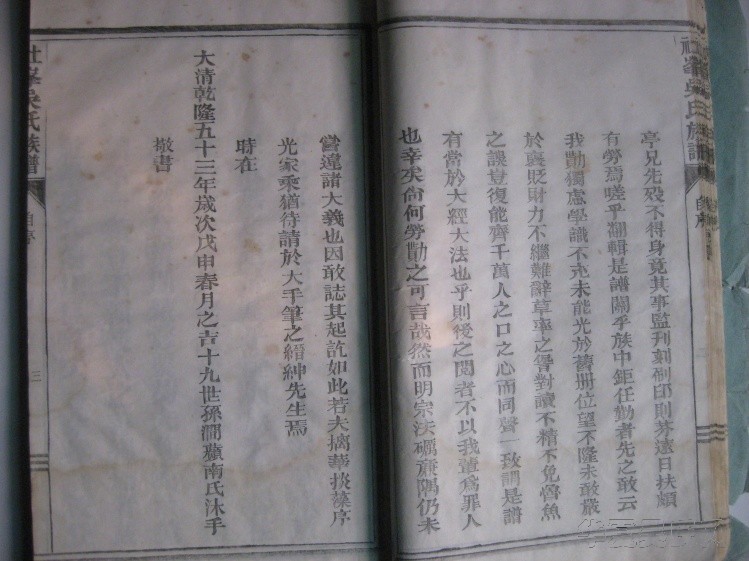 社峯吳氏族譜
自序
亭兄先歿不得身竟其事監刊刻刷印則芥遠日扶頗
有勞焉嗟乎翻輯是譜鬧乎族中鉅任勤者先之敢云
我勩獨慮學識不克未能光於舊册位望不隆未敢嚴
於襃貶財力不繼難辭草率之咎對讀不精不免魯魚
之誤豈復能齊千萬人之口之心而同聲一致謂是譜
有當於大經大法也乎則後之閱者不以我輩爲罪人
也幸矣尙何勞勩之可言哉然而明宗法礪廉隅仍未
嘗違諸大義也因敢誌其起訖如此若夫摛華掞藻序
光家乘猶待請於大手筆之縉紳先生焉
時在
大清乾隆五十三年歲次戊申春月之吉十九世孫澗蘋南氏沐手
敬書
社峯吳氏族譜
自序
三